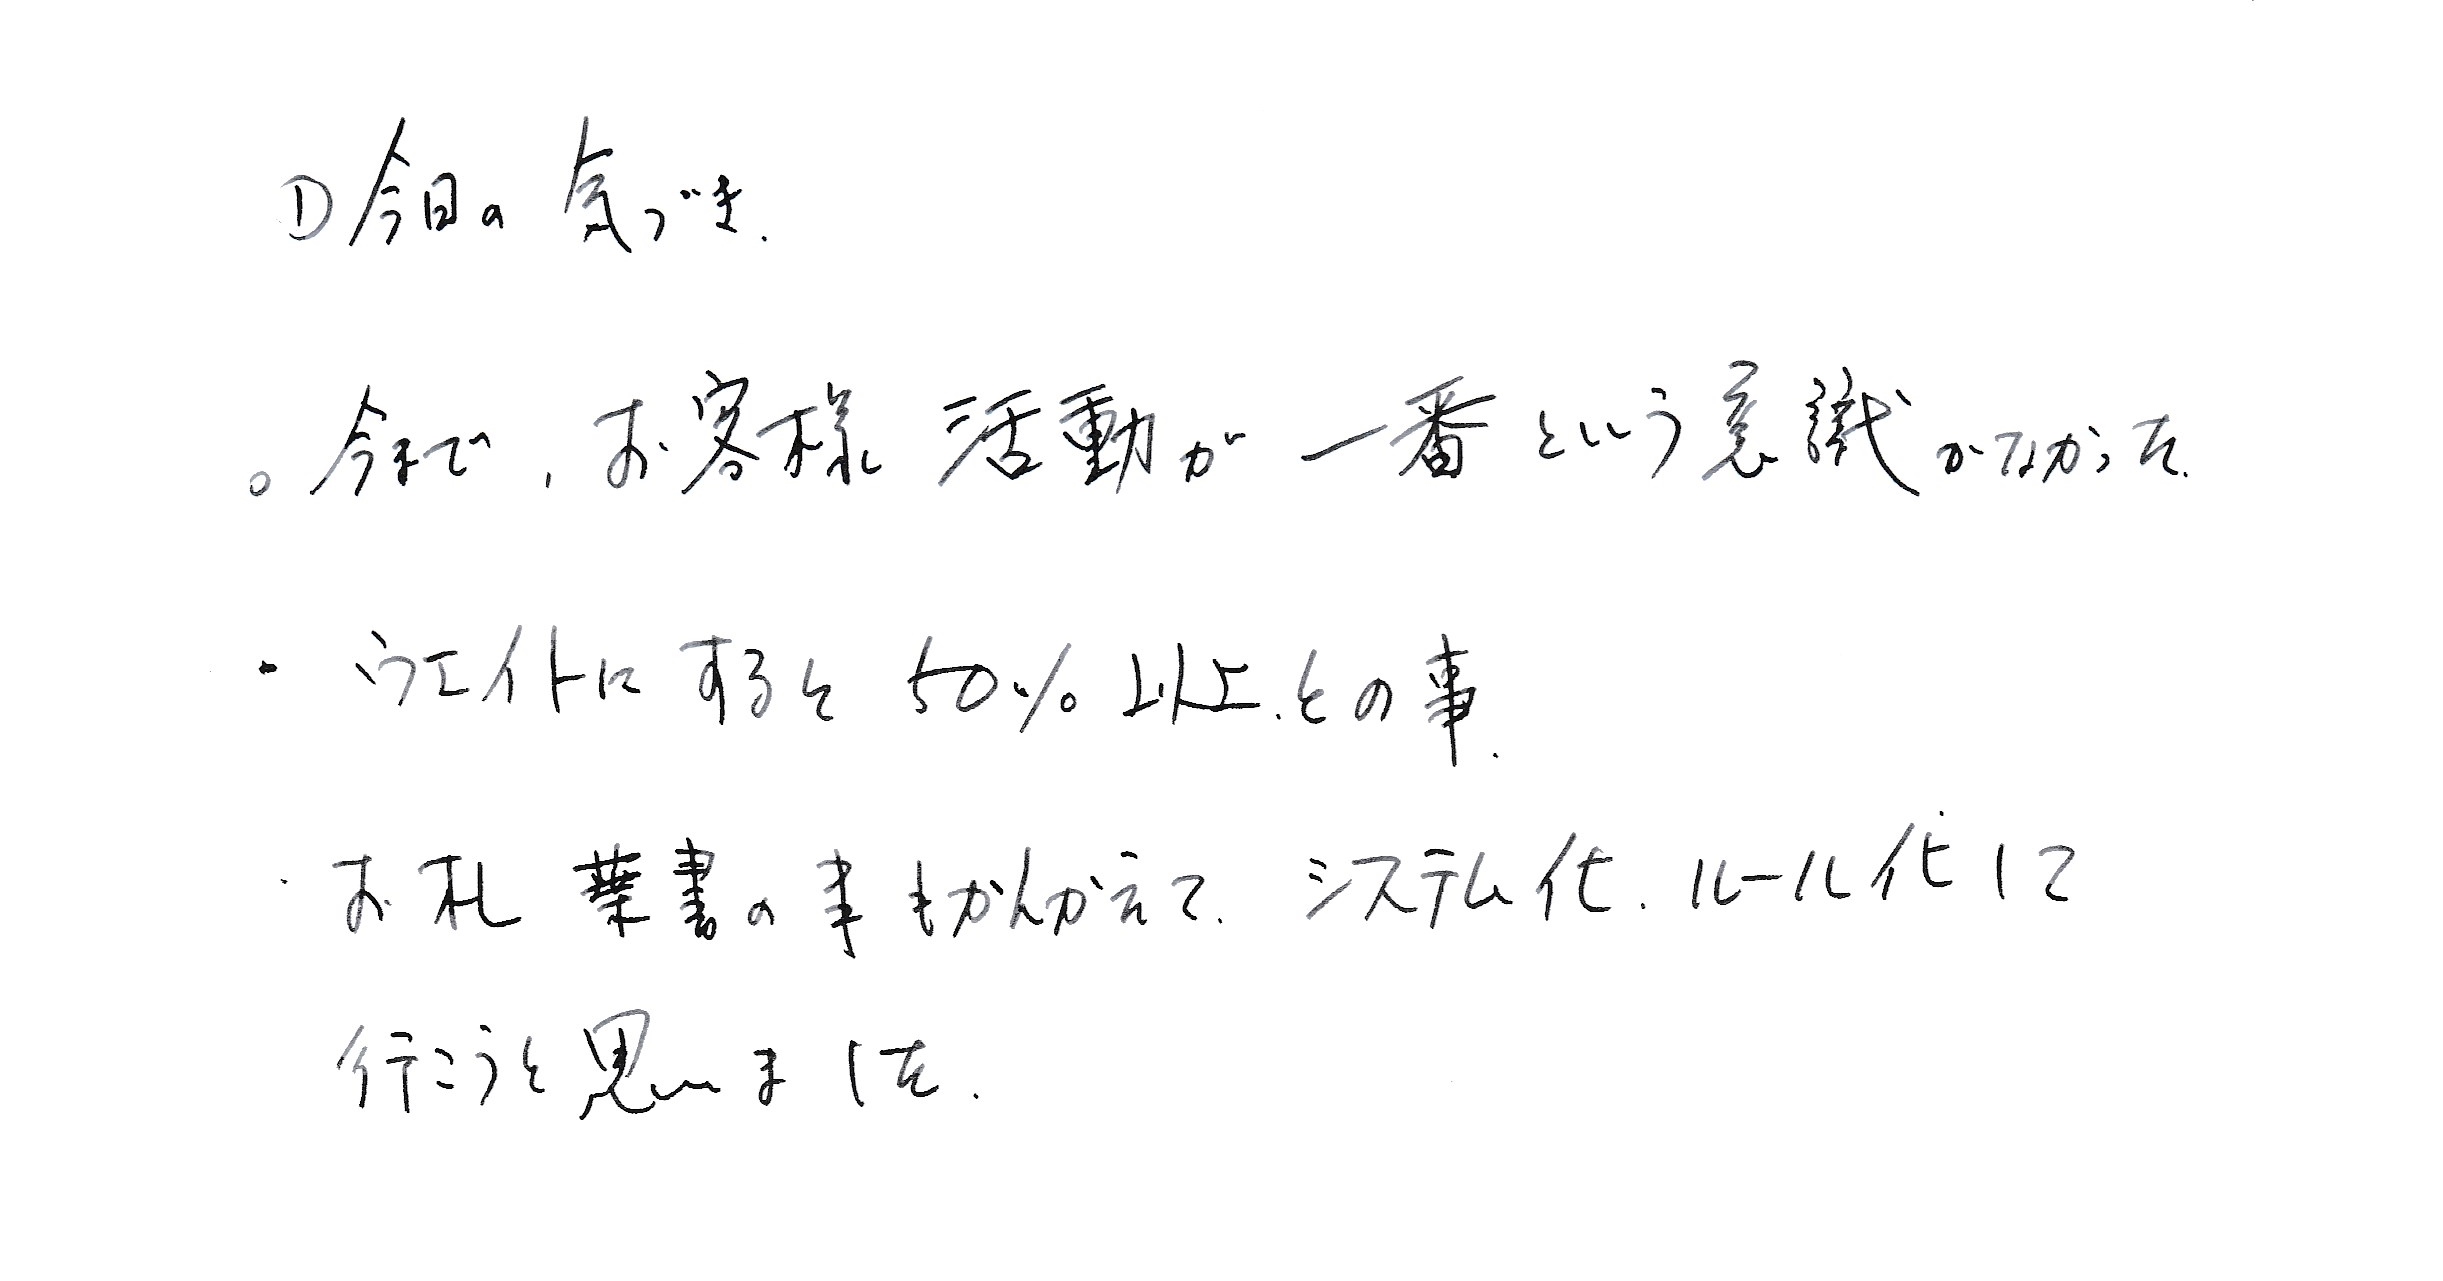 ① 今日の気づき.
。今まで、お客様活動が一番という意識がなかった.
・ウエイトにすると50%以上.との事.
・お札 葉書の事もかんがえて.システム化.ルール化して
行こうと思いました.